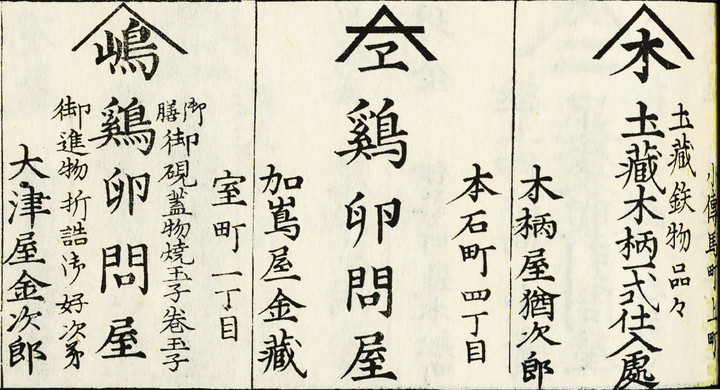 圡藏鉄物品々
木
圡藏木柄一式仕入處
木柄屋猶次郎
本石町四丁目
ヱ
鷄卵問屋
加嶌屋金藏
室町一丁目
御膳御硯蓋物焼玉子巻玉子
嶋
鷄卵問屋
御進物折詰御好次第
大津屋金次郎